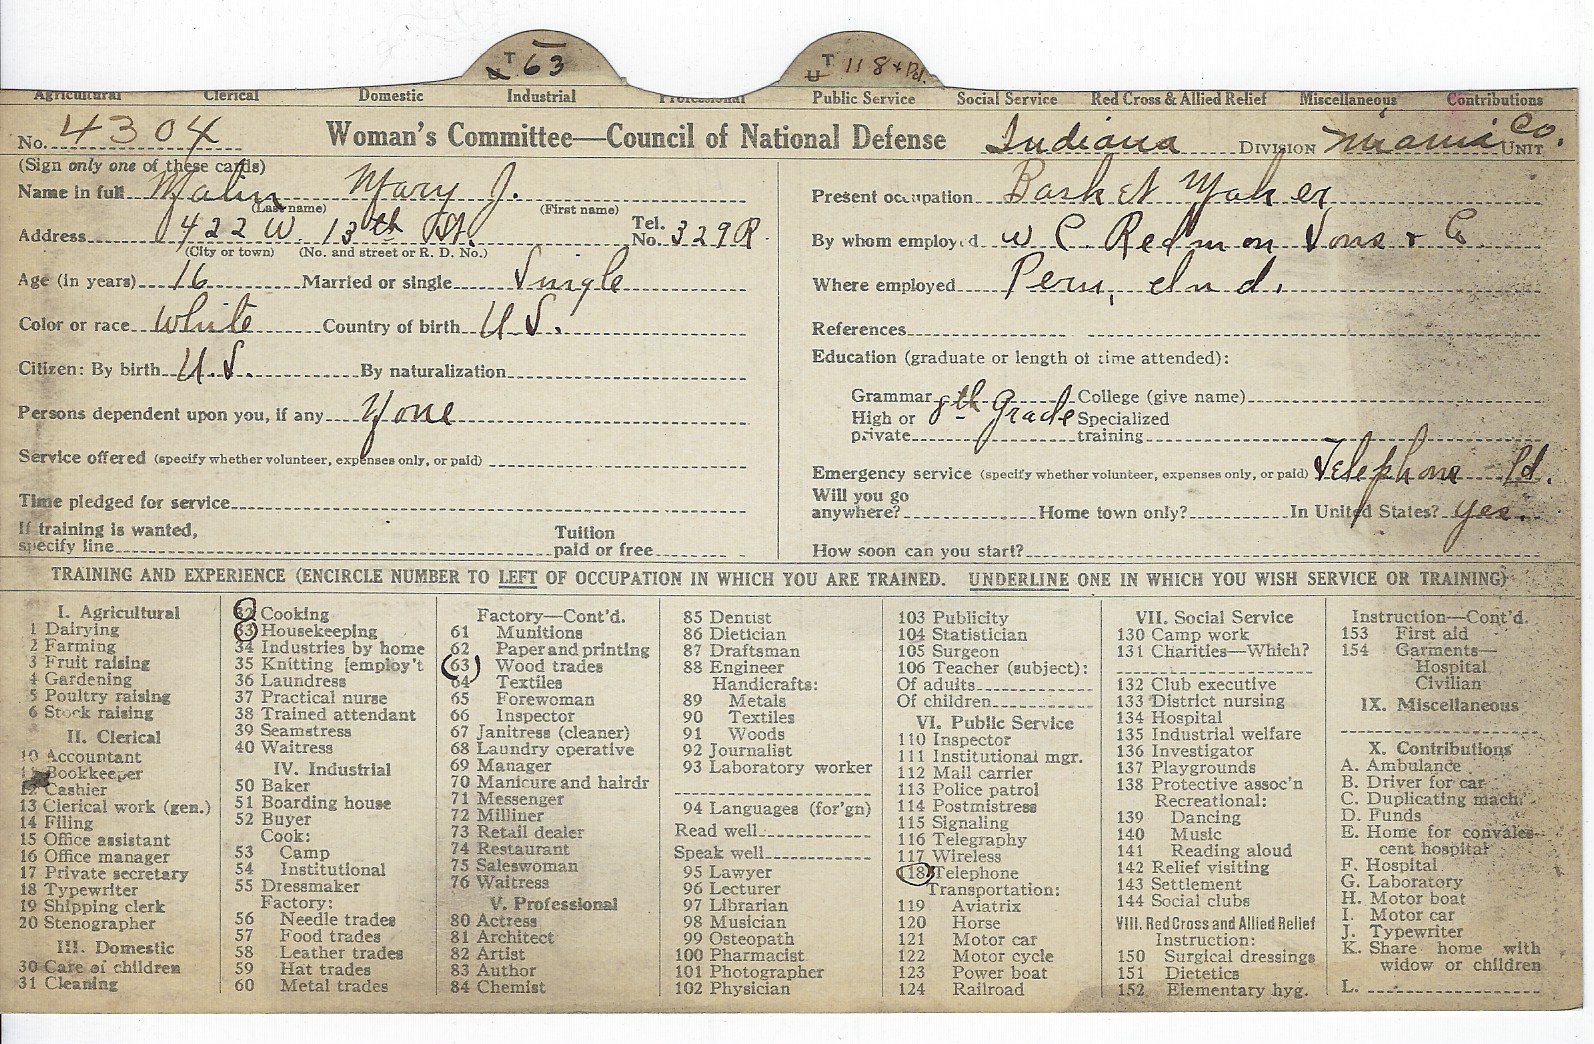 T 63
U T 118 + Pd.
Agricultural Clerical Domestic Industrial Professional Public Service Social Service Red Cross & Allied Relief Miscellaneous Contributions
No. 4304 Woman's Committee—Council of National Defense Indiana DIVISION Miami Co. UNIT
(Sign only one of these cards)
Name in full Malin Mary J.
(Last name) (First name)
Address 422 W. 13th St. Tel. No. 329R
(City or town) (No. and street or R. D. No.)
Age (in years) 16 Married or single Single
Color or race White Country of birth U.S.
Citizen: By birth U.S. By naturalization
Persons dependent upon you, if any None
Service offered (specify whether volunteer, expenses only, or paid)
Time pledged for service
If training is wanted,
specify line Tuition paid or free
Present occupation Basket Maker
By whom employed W C. Redmon Sons & Co
Where employed Peru, Ind.
References
Education (graduate or length of time attended):
Grammar 8th Grade College (give name)
High or private Specialized training
Emergency service (specify whether volunteer, expenses only, or paid) Telephone Pd.
Will you go
anywhere? Home town only? In United States? yes.
How soon can you start?
TRAINING AND EXPERIENCE (ENCIRCLE NUMBER TO LEFT OF OCCUPATION IN WHICH YOU ARE TRAINED. UNDERLINE ONE IN WHICH YOU WISH SERVICE OR TRAINING)
I. Agricultural
1 Dairying
2 Farming
3 Fruit raising
4 Gardening
5 Poultry raising
6 Stock raising
II. Clerical
10 Accountant
11 Bookkeeper
12 Cashier
13 Clerical work (gen.)
14 Filing
15 Office assistant
16 Office manager
17 Private secretary
18 Typewriter
19 Shipping clerk
20 Stenographer
III. Domestic
30 Care of children
31 Cleaning
32 Cooking
33 Housekeeping
34 Industries by home
35 Knitting [employ't
36 Laundress
37 Practical nurse
38 Trained attendant
39 Seamstress
40 Waitress
IV. Industrial
50 Baker
51 Boarding house
52 Buyer
Cook:
53 Camp
54 Institutional
55 Dressmaker
Factory:
56 Needle trades
57 Food trades
58 Leather trades
59 Hat trades
60 Metal trades
Factory—Cont'd.
61 Munitions
62 Paper and printing
63 Wood trades
64 Textiles
65 Forewoman
66 Inspector
67 Janitress (cleaner)
68 Laundry operative
69 Manager
70 Manicure and hairdr
71 Messenger
72 Milliner
73 Retail dealer
74 Restaurant
75 Saleswoman
76 Waitress
V. Professional
80 Actress
81 Architect
82 Artist
83 Author
84 Chemist
85 Dentist
86 Dietician
87 Draftsman
88 Engineer
Handicrafts:
89 Metals
90 Textiles
91 Woods
92 Journalist
93 Laboratory worker
94 Languages (for'gn)
Read well
Speak well
95 Lawyer
96 Lecturer
97 Librarian
98 Musician
99 Osteopath
100 Pharmacist
101 Photographer
102 Physician
103 Publicity
104 Statistician
105 Surgeon
106 Teacher (subject):
Of adults
Of children
VI. Public Service
110 Inspector
111 Institutional mgr.
112 Mail carrier
113 Police patrol
114 Postmistress
115 Signaling
116 Telegraphy
117 Wireless
118 Telephone
Transportation:
119 Aviatrix
120 Horse
121 Motor car
122 Motor cycle
123 Power boat
124 Railroad
VII. Social Service
130 Camp work
131 Charities—Which?
132 Club executive
133 District nursing
134 Hospital
135 Industrial welfare
136 Investigator
137 Playgrounds
138 Protective assoc'n
Recreational:
139 Dancing
140 Music
141 Reading aloud
142 Relief visiting
143 Settlement
144 Social clubs
VIII. Red Cross and Allied Relief
Instruction:
150 Surgical dressings
151 Dietetics
152 Elementary hyg.
Instruction—Cont'd.
153 First aid
154 Garments—
Hospital
Civilian
IX. Miscellaneous
X. Contributions
A. Ambulance
B. Driver for car
C. Duplicating mach.
D. Funds
E. Home for convales-
cent hospital
F. Hospital
G. Laboratory
H. Motor boat
I. Motor car
J. Typewriter
K. Share home with
widow or children
L.